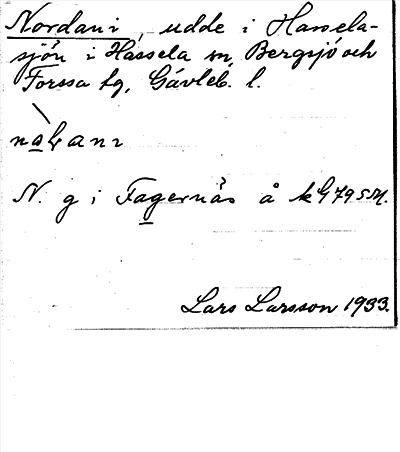 Nordani, udde i Hassela-
sjön i Hassela sn, Bergsjö och
Forssa tg, Gävleb. l.
N. g i Fagernäs å kG 79 SM.
Lars Larsson 1933.